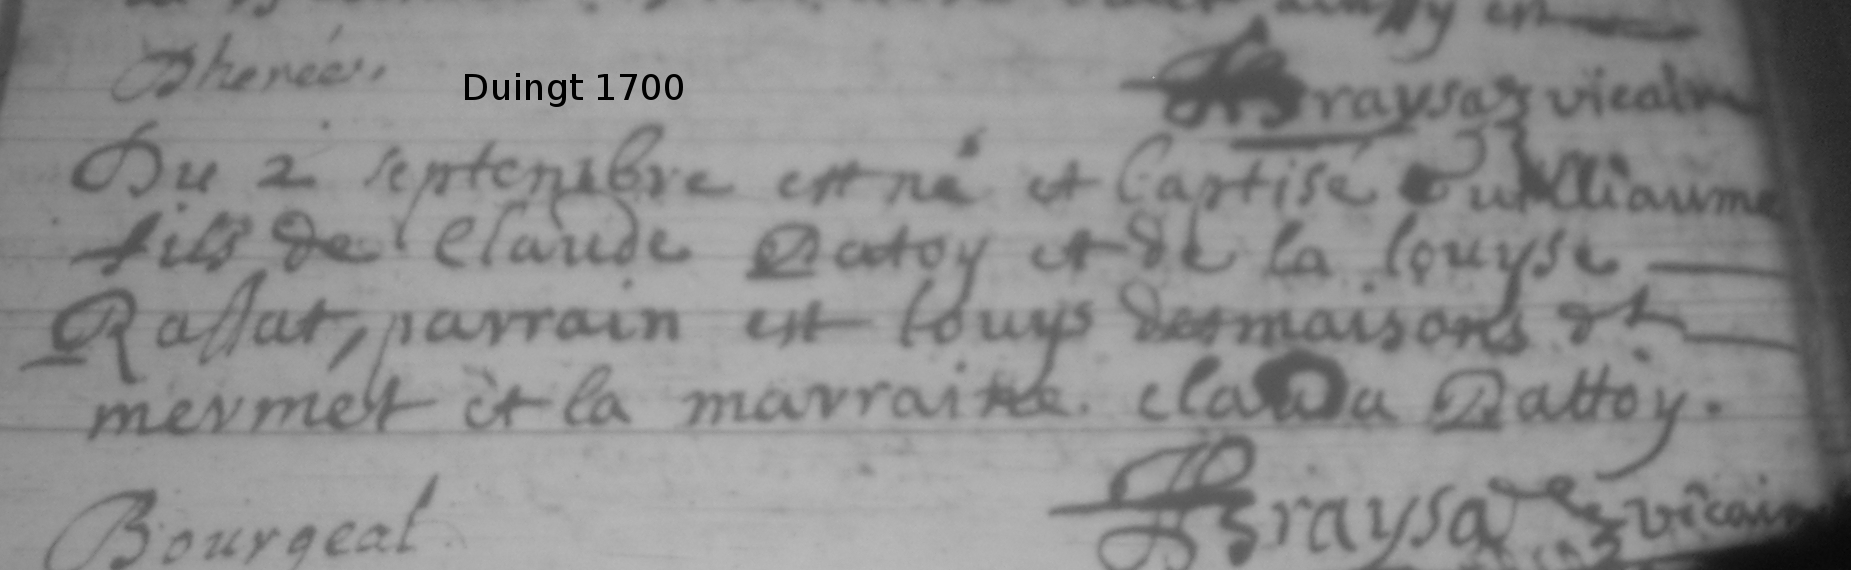 ainsy est
Dherée.
Duingt 1700
Fraysaz vicaire
Du 2 septembre est né et baptisé Guilliaume
fils de Claude Datoy et de la louyse
Rassat, parrain est louys desmaisons dt
mermet et la marraine. clauda Dattoy.
Bourgeat
Fraysaz vicaire